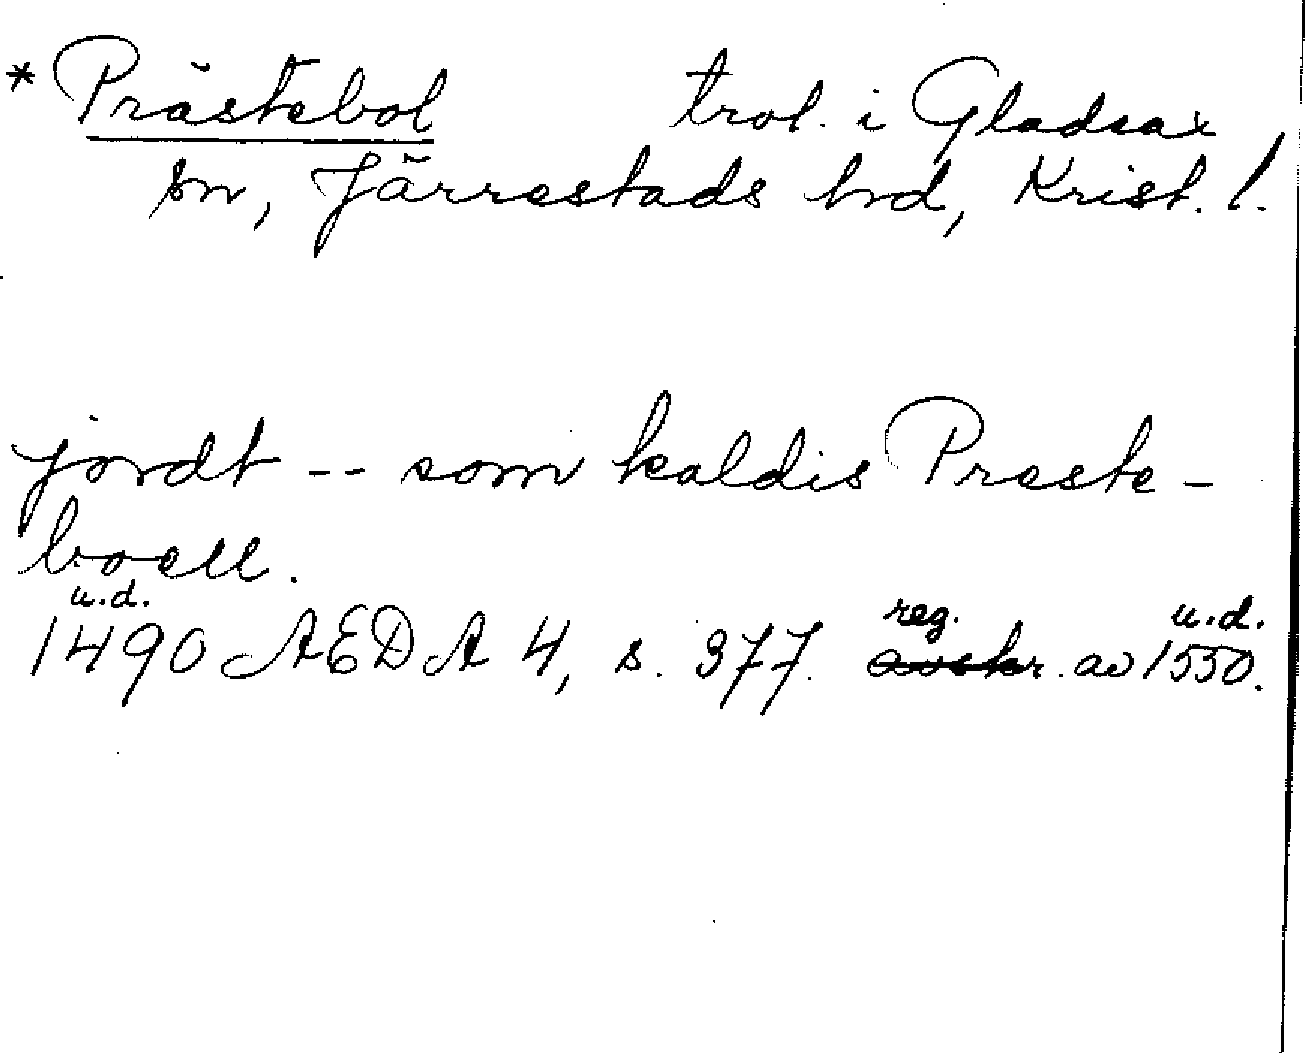 * Prästebol trol. i Gladsax
sn, Järrestads hd, Krist. l.
jordt -- som kaldis Preste-
boell.
u.d. reg. u.d.
1490 AEDA 4, s. 377. avskr. av 1550.